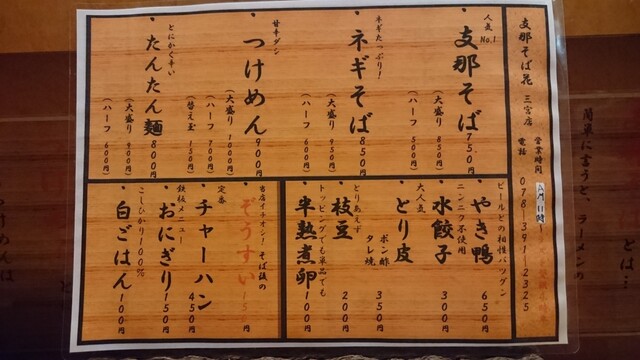 支那そば花 三宮店
営業時間
電話 078-391-2325
人気No.1
・支那そば 750円
(大盛り 850円)
(ハーフ 500円)
ネギたっぷり!
・ネギそば 850円
(大盛り 950円)
(ハーフ 600円)
甘辛ダレ
・つけめん 900円
(大盛り 1000円)
(ハーフ 700円)
(替え玉 150円)
とにかく辛い
・たんたん麺 800円
(大盛り 900円)
(ハーフ 600円)
ビールとの相性バツグン
・やき鴨 650円
ニンニク不使用
・水餃子 300円
大人気
・とり皮 350円
ポン酢
タレ焼
とりあえず
・枝豆 200円
トッピングでも単品でも
・半熟煮卵 100円
当店イチオシ! そば後の
・ぞうすい 150円
定番
・チャーハン 450円
鉄板メニュー
・おにぎり 150円
こしひかり100%
・白ごはん 100円
簡単に言うと、ラーメンの
とは…